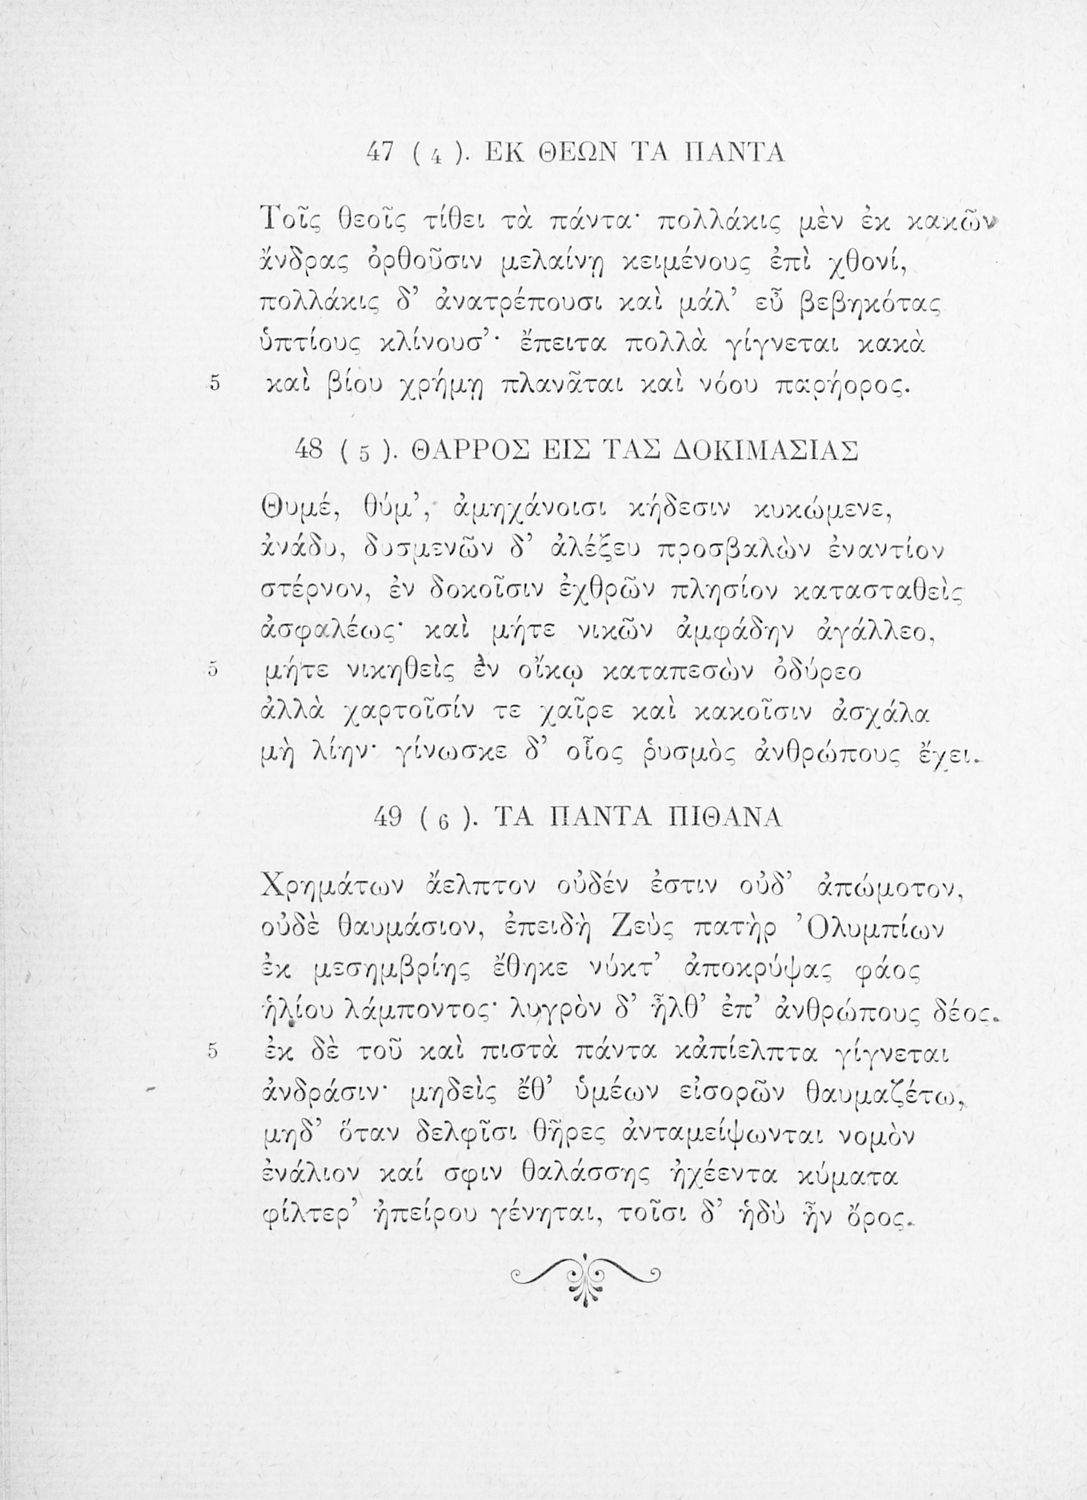 47 ( 4 ). ΕΚ ΘΕΩΝ ΤΑ ΠΑΝΤΑ
Τοῖς θεοῖς τίθει τὰ πάντα· πολλάκις μὲν ἐκ κακῶν
ἄνδρας ὀρθοῦσιν μελαίνῃ κειμένους ἐπὶ χθονί,
πολλάκις δ’ ἀνατρέπουσι καὶ μάλ’ εὖ βεβηκότας
ὑπτίους κλίνουσ’· ἔπειτα πολλὰ γίγνεται κακὰ
5 καὶ βίου χρήμῃ πλανᾶται καὶ νόου παρήορος.
48 ( 5 ). ΘΑΡΡΟΣ ΕΙΣ ΤΑΣ ΔΟΚΙΜΑΣΙΑΣ
Θυμέ, θύμ’, ἀμηχάνοισι κήδεσιν κυκώμενε,
ἀνάδυ, δυσμενῶν δ’ ἀλέξευ προσβαλὼν ἐναντίον
στέρνον, ἐν δοκοῖσιν ἐχθρῶν πλησίον κατασταθεὶς
ἀσφαλέως· καὶ μήτε νικῶν ἀμφάδην ἀγάλλεο,
5 μήτε νικηθεὶς ἐν οἴκῳ καταπεσὼν ὀδύρεο
ἀλλὰ χαρτοῖσίν τε χαῖρε καὶ κακοῖσιν ἀσχάλα
μὴ λίην· γίνωσκε δ’ οἷος ῥυσμὸς ἀνθρώπους ἔχει.
49 ( 6 ). ΤΑ ΠΑΝΤΑ ΠΙΘΑΝΑ
Χρημάτων ἄελπτον οὐδέν ἐστιν οὐδ’ ἀπώμοτον,
οὐδὲ θαυμάσιον, ἐπειδὴ Ζεὺς πατὴρ Ὀλυμπίων
ἐκ μεσημβρίης ἔθηκε νύκτ’ ἀποκρύψας φάος
ἡλίου λάμποντος· λυγρὸν δ’ ἦλθ’ ἐπ’ ἀνθρώπους δέος.
5 ἐκ δὲ τοῦ καὶ πιστὰ πάντα κἀπίελπτα γίγνεται
ἀνδράσιν· μηδεὶς ἔθ’ ὑμέων εἰσορῶν θαυμαζέτω,
μηδ’ ὅταν δελφῖσι θῆρες ἀνταμείψωνται νομὸν
ἐνάλιον καί σφιν θαλάσσης ἠχέεντα κύματα
φίλτερ’ ἠπείρου γένηται, τοῖσι δ’ ἡδὺ ἦν ὄρος.